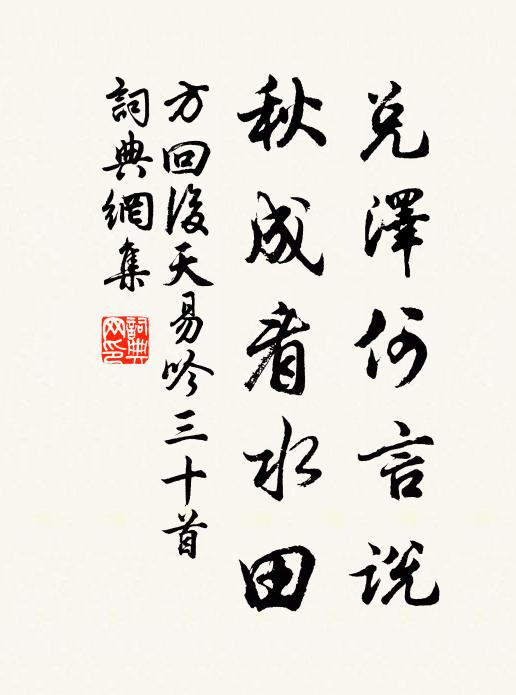 兌澤何言說
秋成看水田
方回後天易吟三十首
詞典網集
詞典網印